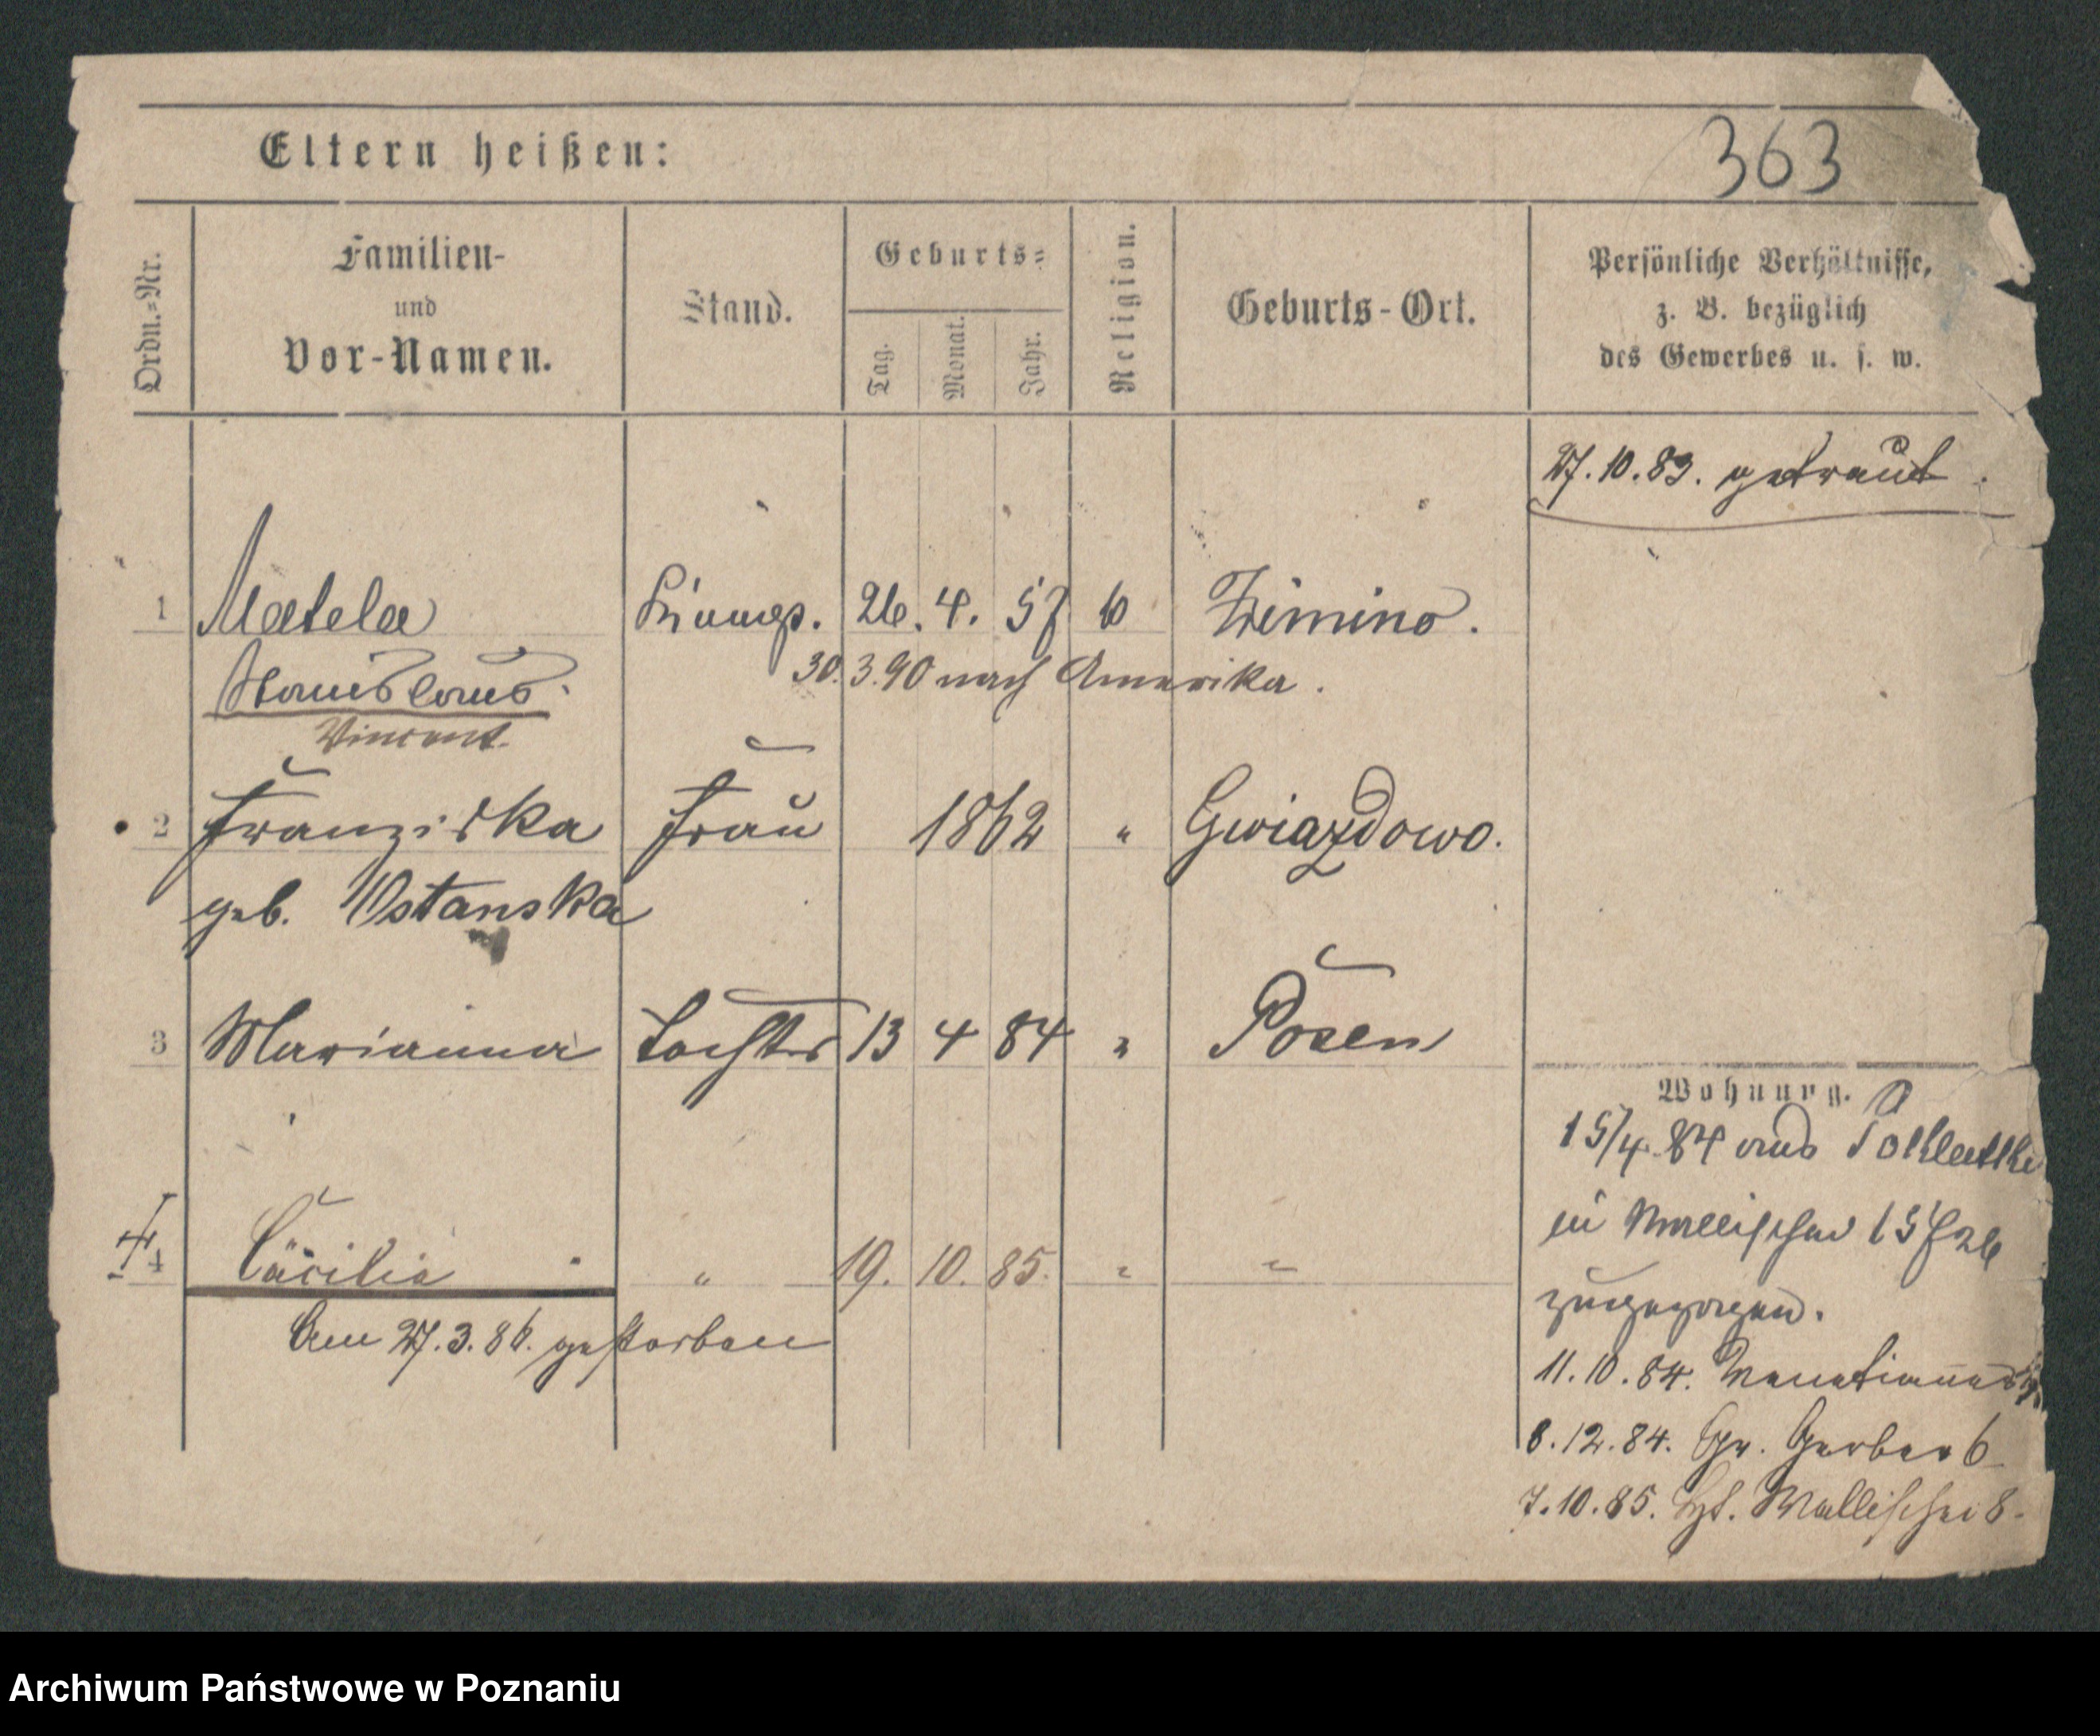 Eltern heißen:
363
Ordn.=Nr.
Familien-
und
Vor-Namen.
Stand.
Geburts=
Tag.
Monat.
Jahr.
Religion.
Geburts-Ort.
Persönliche Verhältnisse,
z. B. bezüglich
des Gewerbes u. s. w.
27.10.83. getraut.
1 Matela 26. 4. 57 Zimino.
Stanislaus
30.3.90 nach Amerika.
Vincent.
2 Franziska Frau 1862 " Gwiazdowo.
geb. Ostanska
3 Marianna Tochter 13 4 84 " Posen
Wohnung.
15/4 84 aus
in Wallischei
zugezogen.
4 Cäcilia " 19. 10. 85. " "
Am 27.3.86. gestorben
11.10.84. Venetianer
8.12.84. Gr. Gerber 6
7.10.85. Wallischei 8.
Archiwum Państwowe w Poznaniu